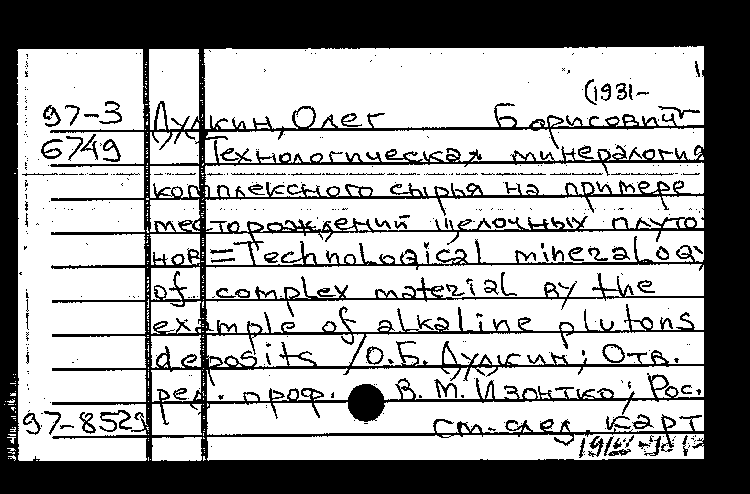 (1931-
97-3 Дудкин, Олег Борисович
6749 Технологическая минералогия
комплексного сырья на примере
месторождений щелочных плуто
нов = Technological mineralogy
of complex material by the
example of alkaline plutons
deposits / О.Б. Дудкин; Отв.
ред. проф. В. М. Изоитко; Рос.
97-8529 см. след. карт